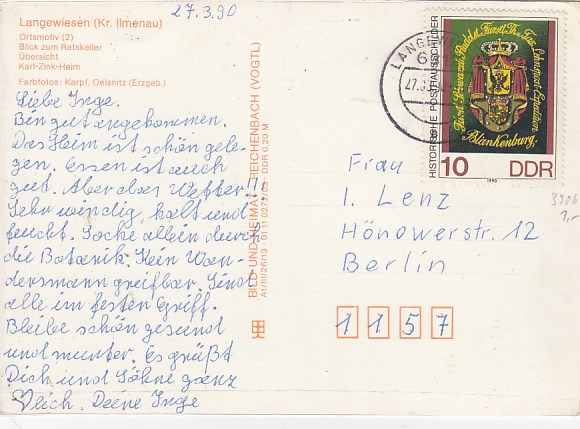 27.3.90
Langewiesen (Kr. Ilmenau)
Ortsmotiv (2)
Blick zum Ratskeller
Übersicht
Karl-Zink-Heim
Farbfotos: Karpf, Oelsnitz (Erzgeb.)
Liebe Inge.
Bin gut angekommen.
Das Heim ist schön gele-
gen. Essen ist auch
gut. Aber das Wetter!!
Sehr windig, kalt und
feucht. Socke allein durch
die Botanik. Kein Wan-
dersmann greifbar. Sind
alle im festen Griff.
Bleibe schön gesund
und munter. Es grüßt
Dich und Söhne ganz
♡lich. Deine Inge
BILD UND HEIMAT REICHENBACH (VOGTL)
A1/III/26/13 01 11 0272/03 DDR 0,20 M
HISTORISCHE POSTHAUSSCHILDER
Blankenburg.
10 DDR
1990
LANGEW
27.3
Frau
I. Lenz
Hönowerstr. 12
Berlin
1157
3306
1,-